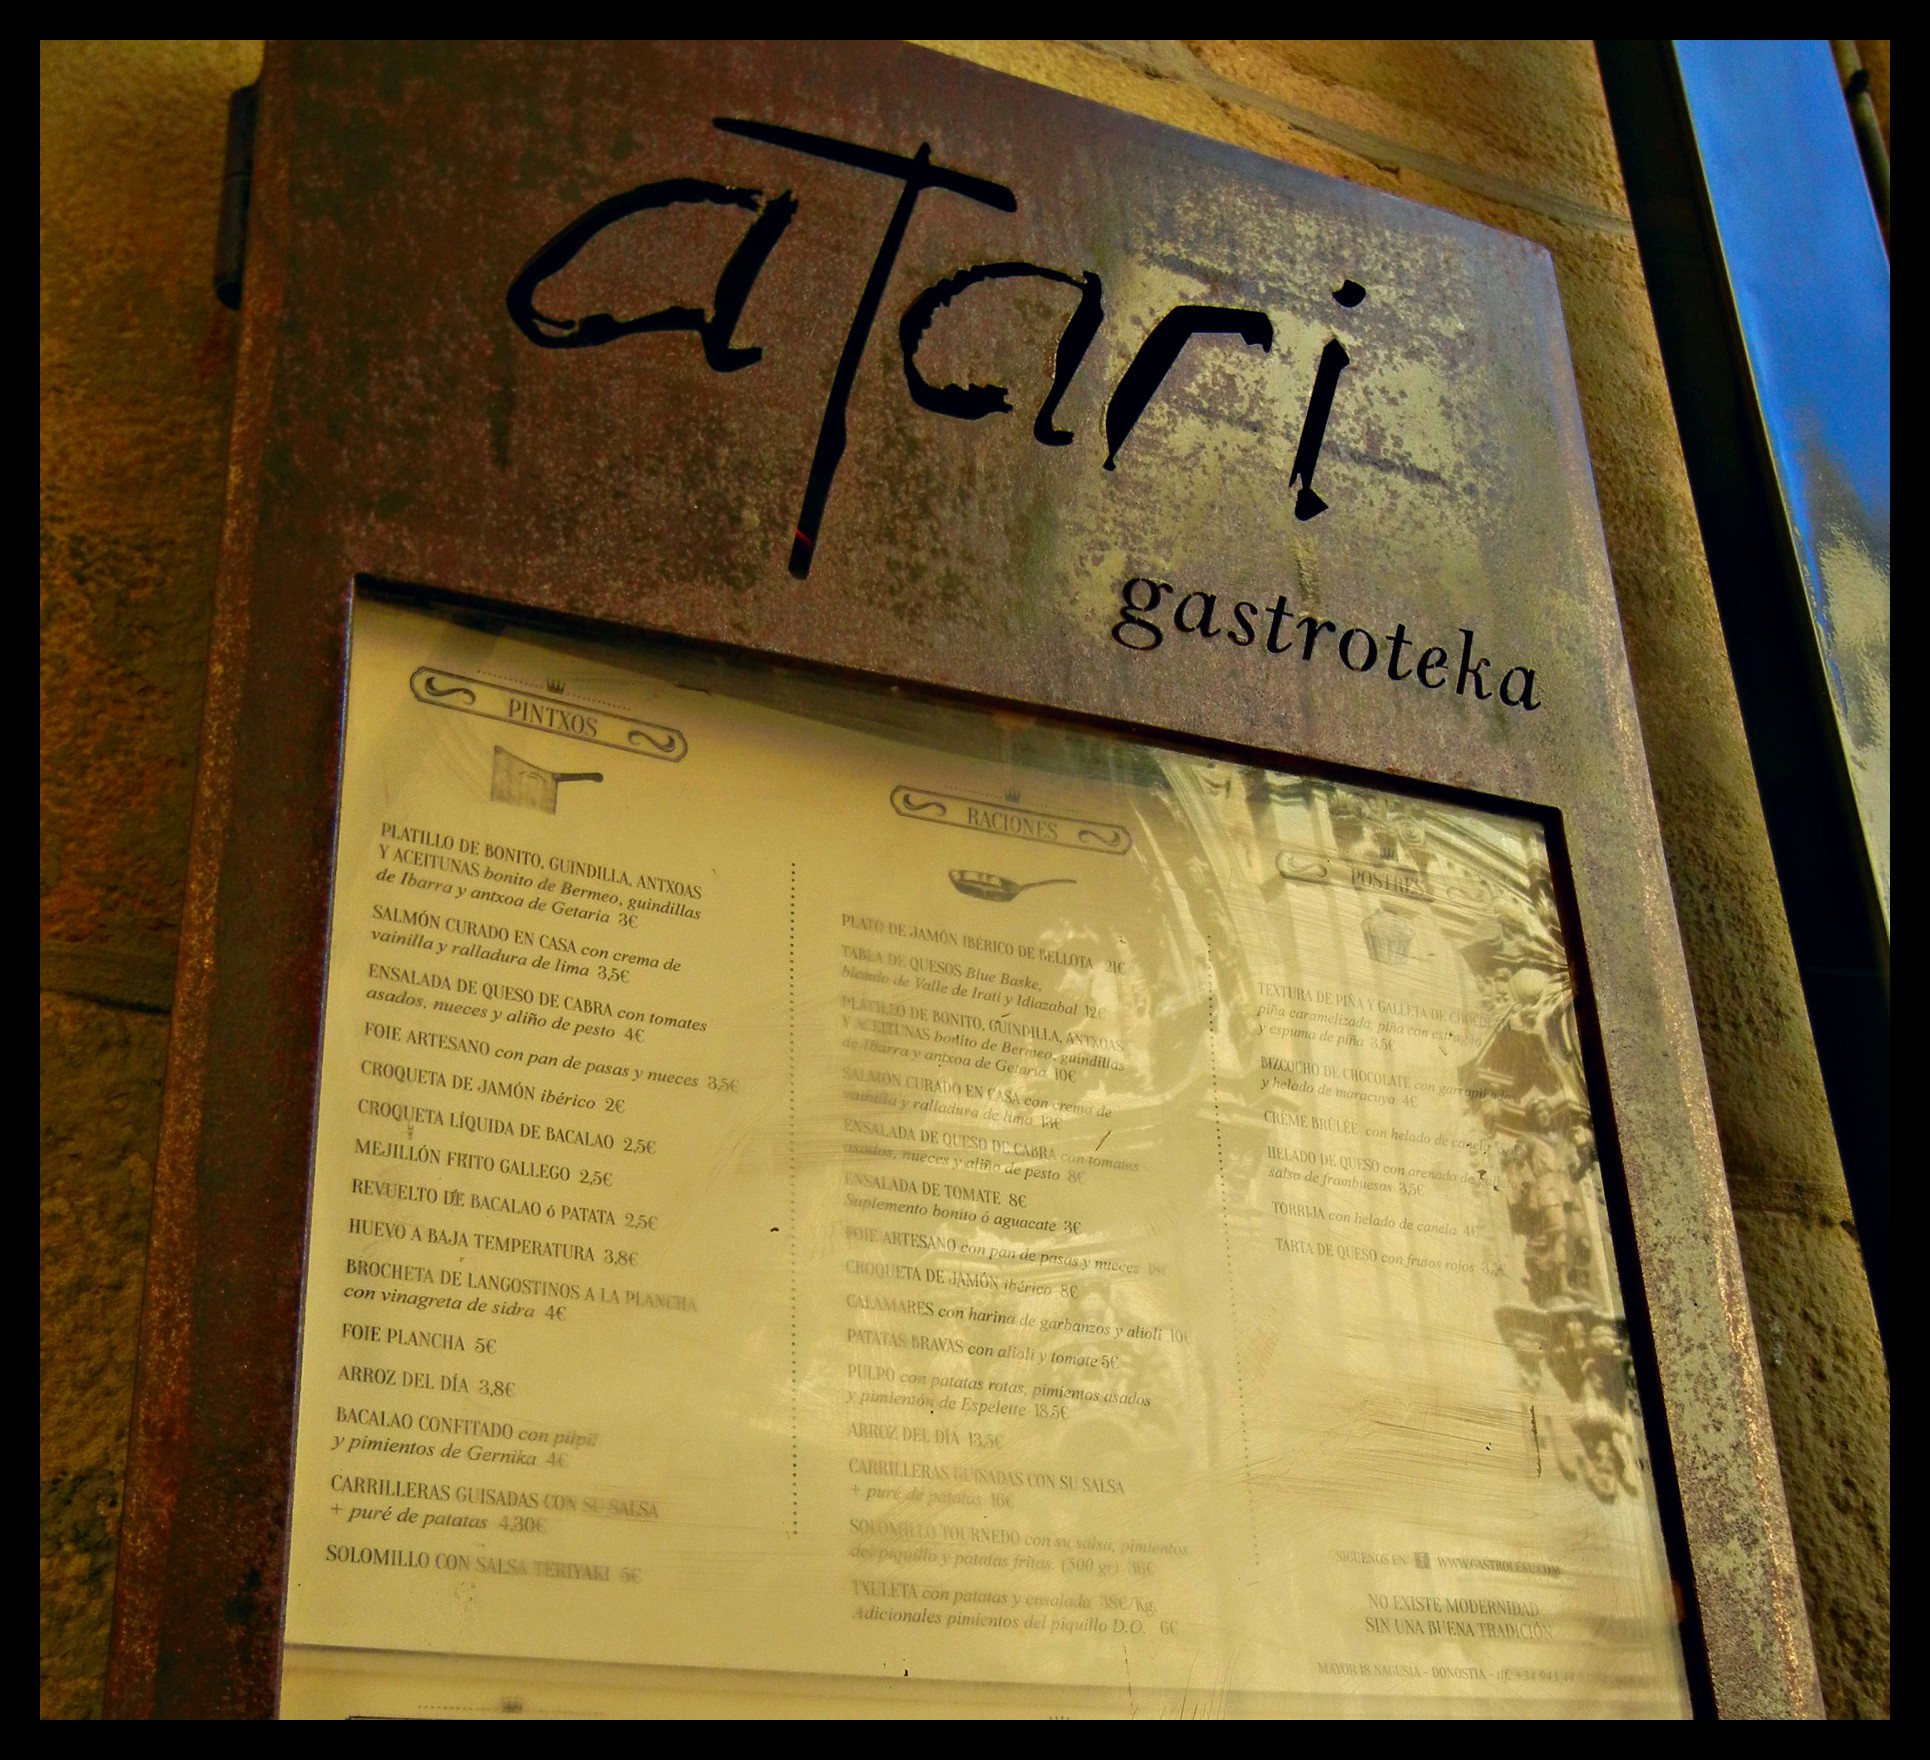 aTari
gastroteka
PINTXOS
PLATILLO DE BONITO, GUINDILLA, ANTXOAS
Y ACEITUNAS bonito de Bermeo, guindillas
de Ibarra y antxoa de Getaria 3€
SALMÓN CURADO EN CASA con crema de
vainilla y ralladura de lima 3,5€
ENSALADA DE QUESO DE CABRA con tomates
asados, nueces y aliño de pesto 4€
FOIE ARTESANO con pan de pasas y nueces 3,5€
CROQUETA DE JAMÓN ibérico 2€
CROQUETA LÍQUIDA DE BACALAO 2,5€
MEJILLÓN FRITO GALLEGO 2,5€
REVUELTO DE BACALAO ó PATATA 2,5€
HUEVO A BAJA TEMPERATURA 3,8€
BROCHETA DE LANGOSTINOS A LA PLANCHA
con vinagreta de sidra 4€
FOIE PLANCHA 5€
ARROZ DEL DÍA 3,8€
BACALAO CONFITADO con pilpil
y pimientos de Gernika 4€
CARRILLERAS GUISADAS CON SU SALSA
+ puré de patatas 4,30€
SOLOMILLO CON SALSA TERIYAKI 5€
RACIONES
PLATO DE JAMÓN IBÉRICO DE BELLOTA 21€
TABLA DE QUESOS Blue Baske,
blando de Valle de Irati y Idiazabal 12€
PLATILLO DE BONITO, GUINDILLA, ANTXOAS
Y ACEITUNAS bonito de Bermeo, guindillas
de Ibarra y antxoa de Getaria 10€
SALMÓN CURADO EN CASA con crema de
vainilla y ralladura de lima 13€
ENSALADA DE QUESO DE CABRA con tomates
asados, nueces y aliño de pesto 8€
ENSALADA DE TOMATE 8€
Suplemento bonito ó aguacate 3€
FOIE ARTESANO con pan de pasas y nueces 18€
CROQUETA DE JAMÓN ibérico 8€
CALAMARES con harina de garbanzos y alioli 10€
PATATAS BRAVAS con alioli y tomate 5€
PULPO con patatas rotas, pimientos asados
y pimientón de Espelette 18,5€
ARROZ DEL DÍA 13,5€
CARRILLERAS GUISADAS CON SU SALSA
+ puré de patatas 16€
SOLOMILLO TOURNEDO con su salsa, pimientos
del piquillo y patatas fritas. (500 gr) 36€
TXULETA con patatas y ensalada 38€/Kg.
Adicionales pimientos del piquillo D.O. 6€
POSTRES
TEXTURA DE PIÑA Y GALLETA DE
piña caramelizada, piña con estragón
y espuma de piña 3,5€
BIZCOCHO DE CHOCOLATE con
y helado de maracuya 4€
CRÈME BRÛLÉE con helado de
HELADO DE QUESO con arenado de
salsa de frambuesas 3,5€
TORRIJA con helado de canela 4€
TARTA DE QUESO con frutos rojos
SIGUENOS EN f
NO EXISTE MODERNIDAD
SIN UNA BUENA TRADICIÓN
MAYOR 18 NAGUSIA - DONOSTIA - tlf. +34 943